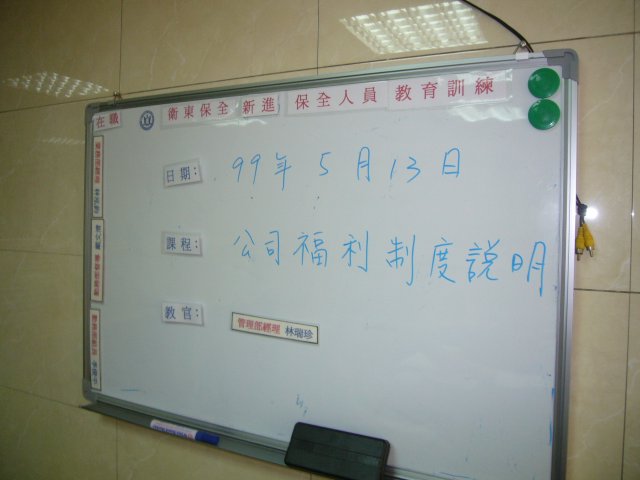 在職 衛東保全 新進 保全人員 教育訓練
日期: 99年5月13日
課程: 公司福利制度說明
教官: 管理部經理 林瑞珍